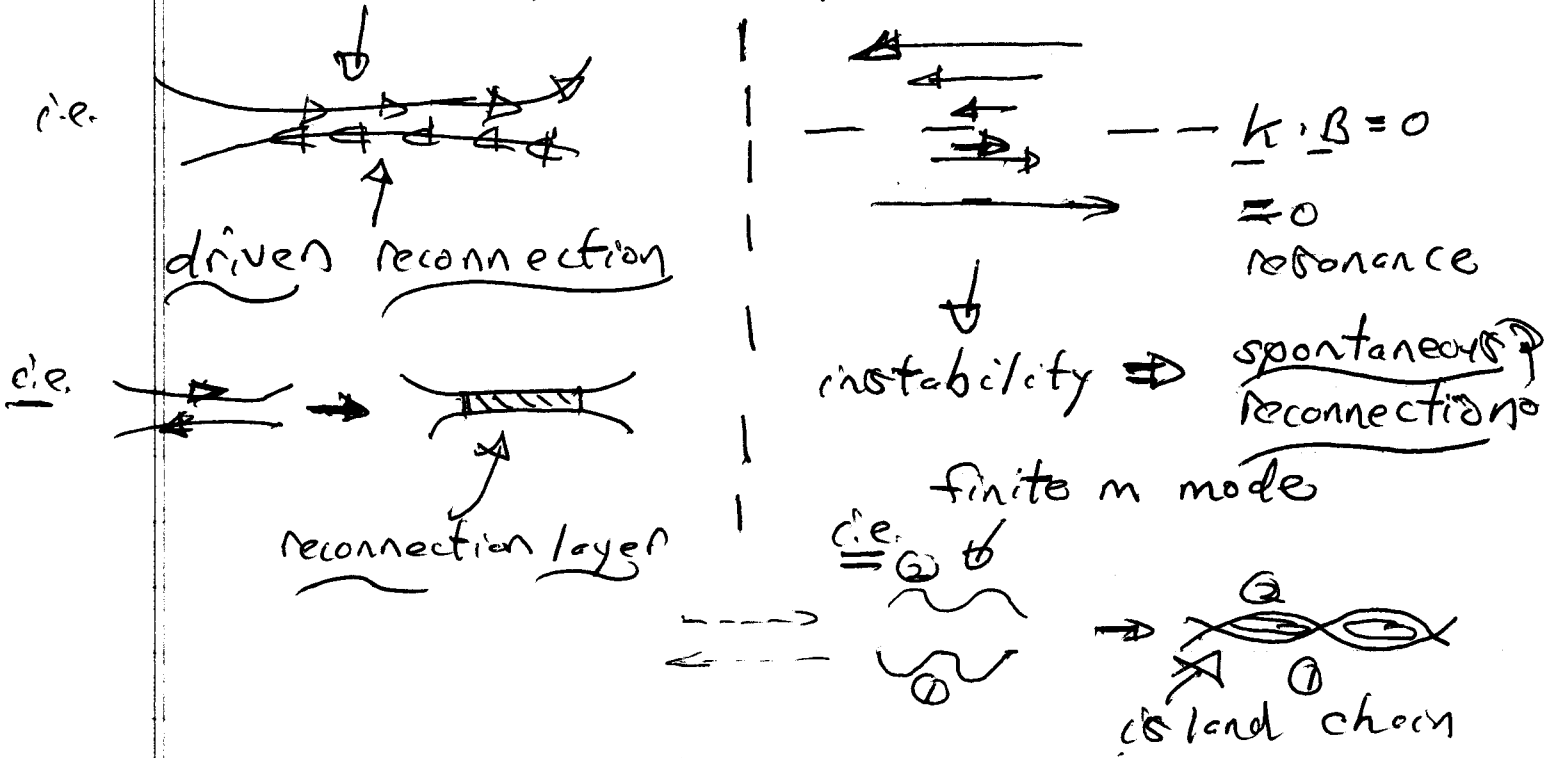 i.e.
driven reconnection
i.e.
reconnection layer
k · B = 0
= 0
resonance
instability ⇒ spontaneous
reconnection
finite m mode
i.e.
②
①
②
①
island chain